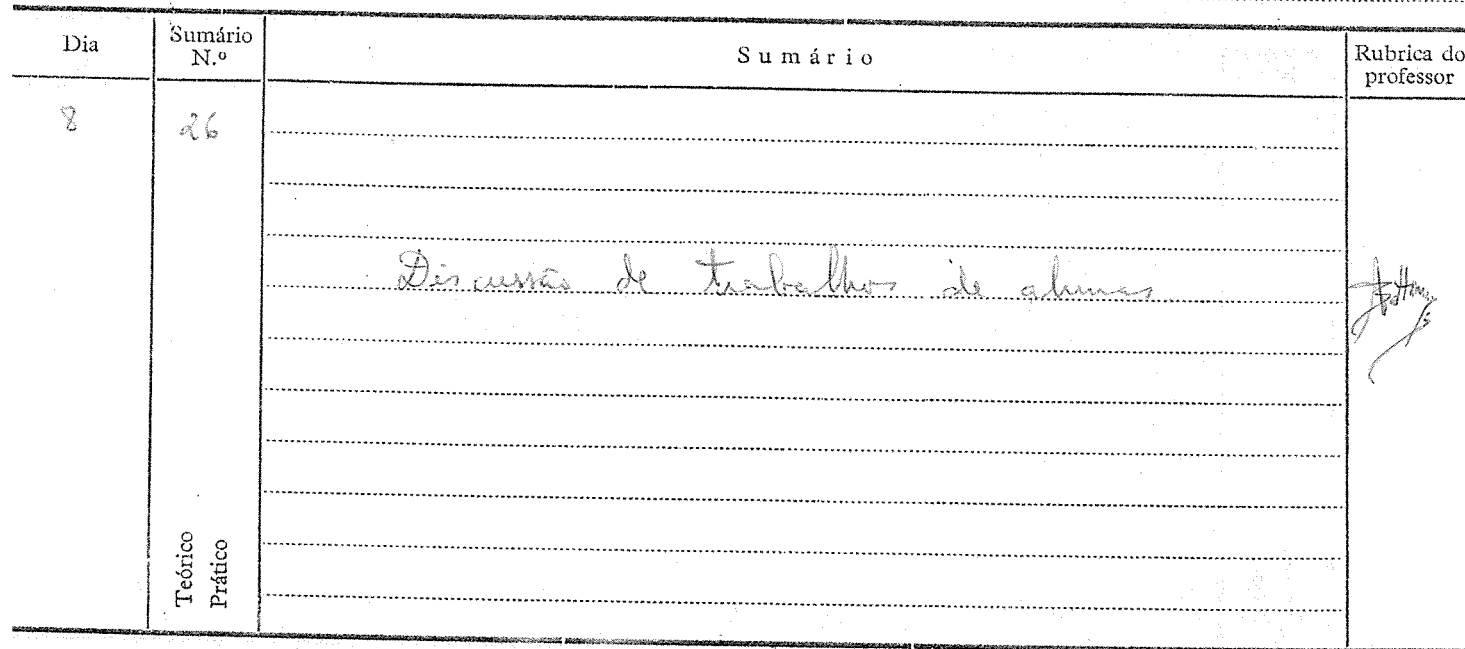 Dia
Sumário N.º
Sumário
Rubrica do professor
8
26
Discussão de trabalhos de alunos
Teórico
Prático